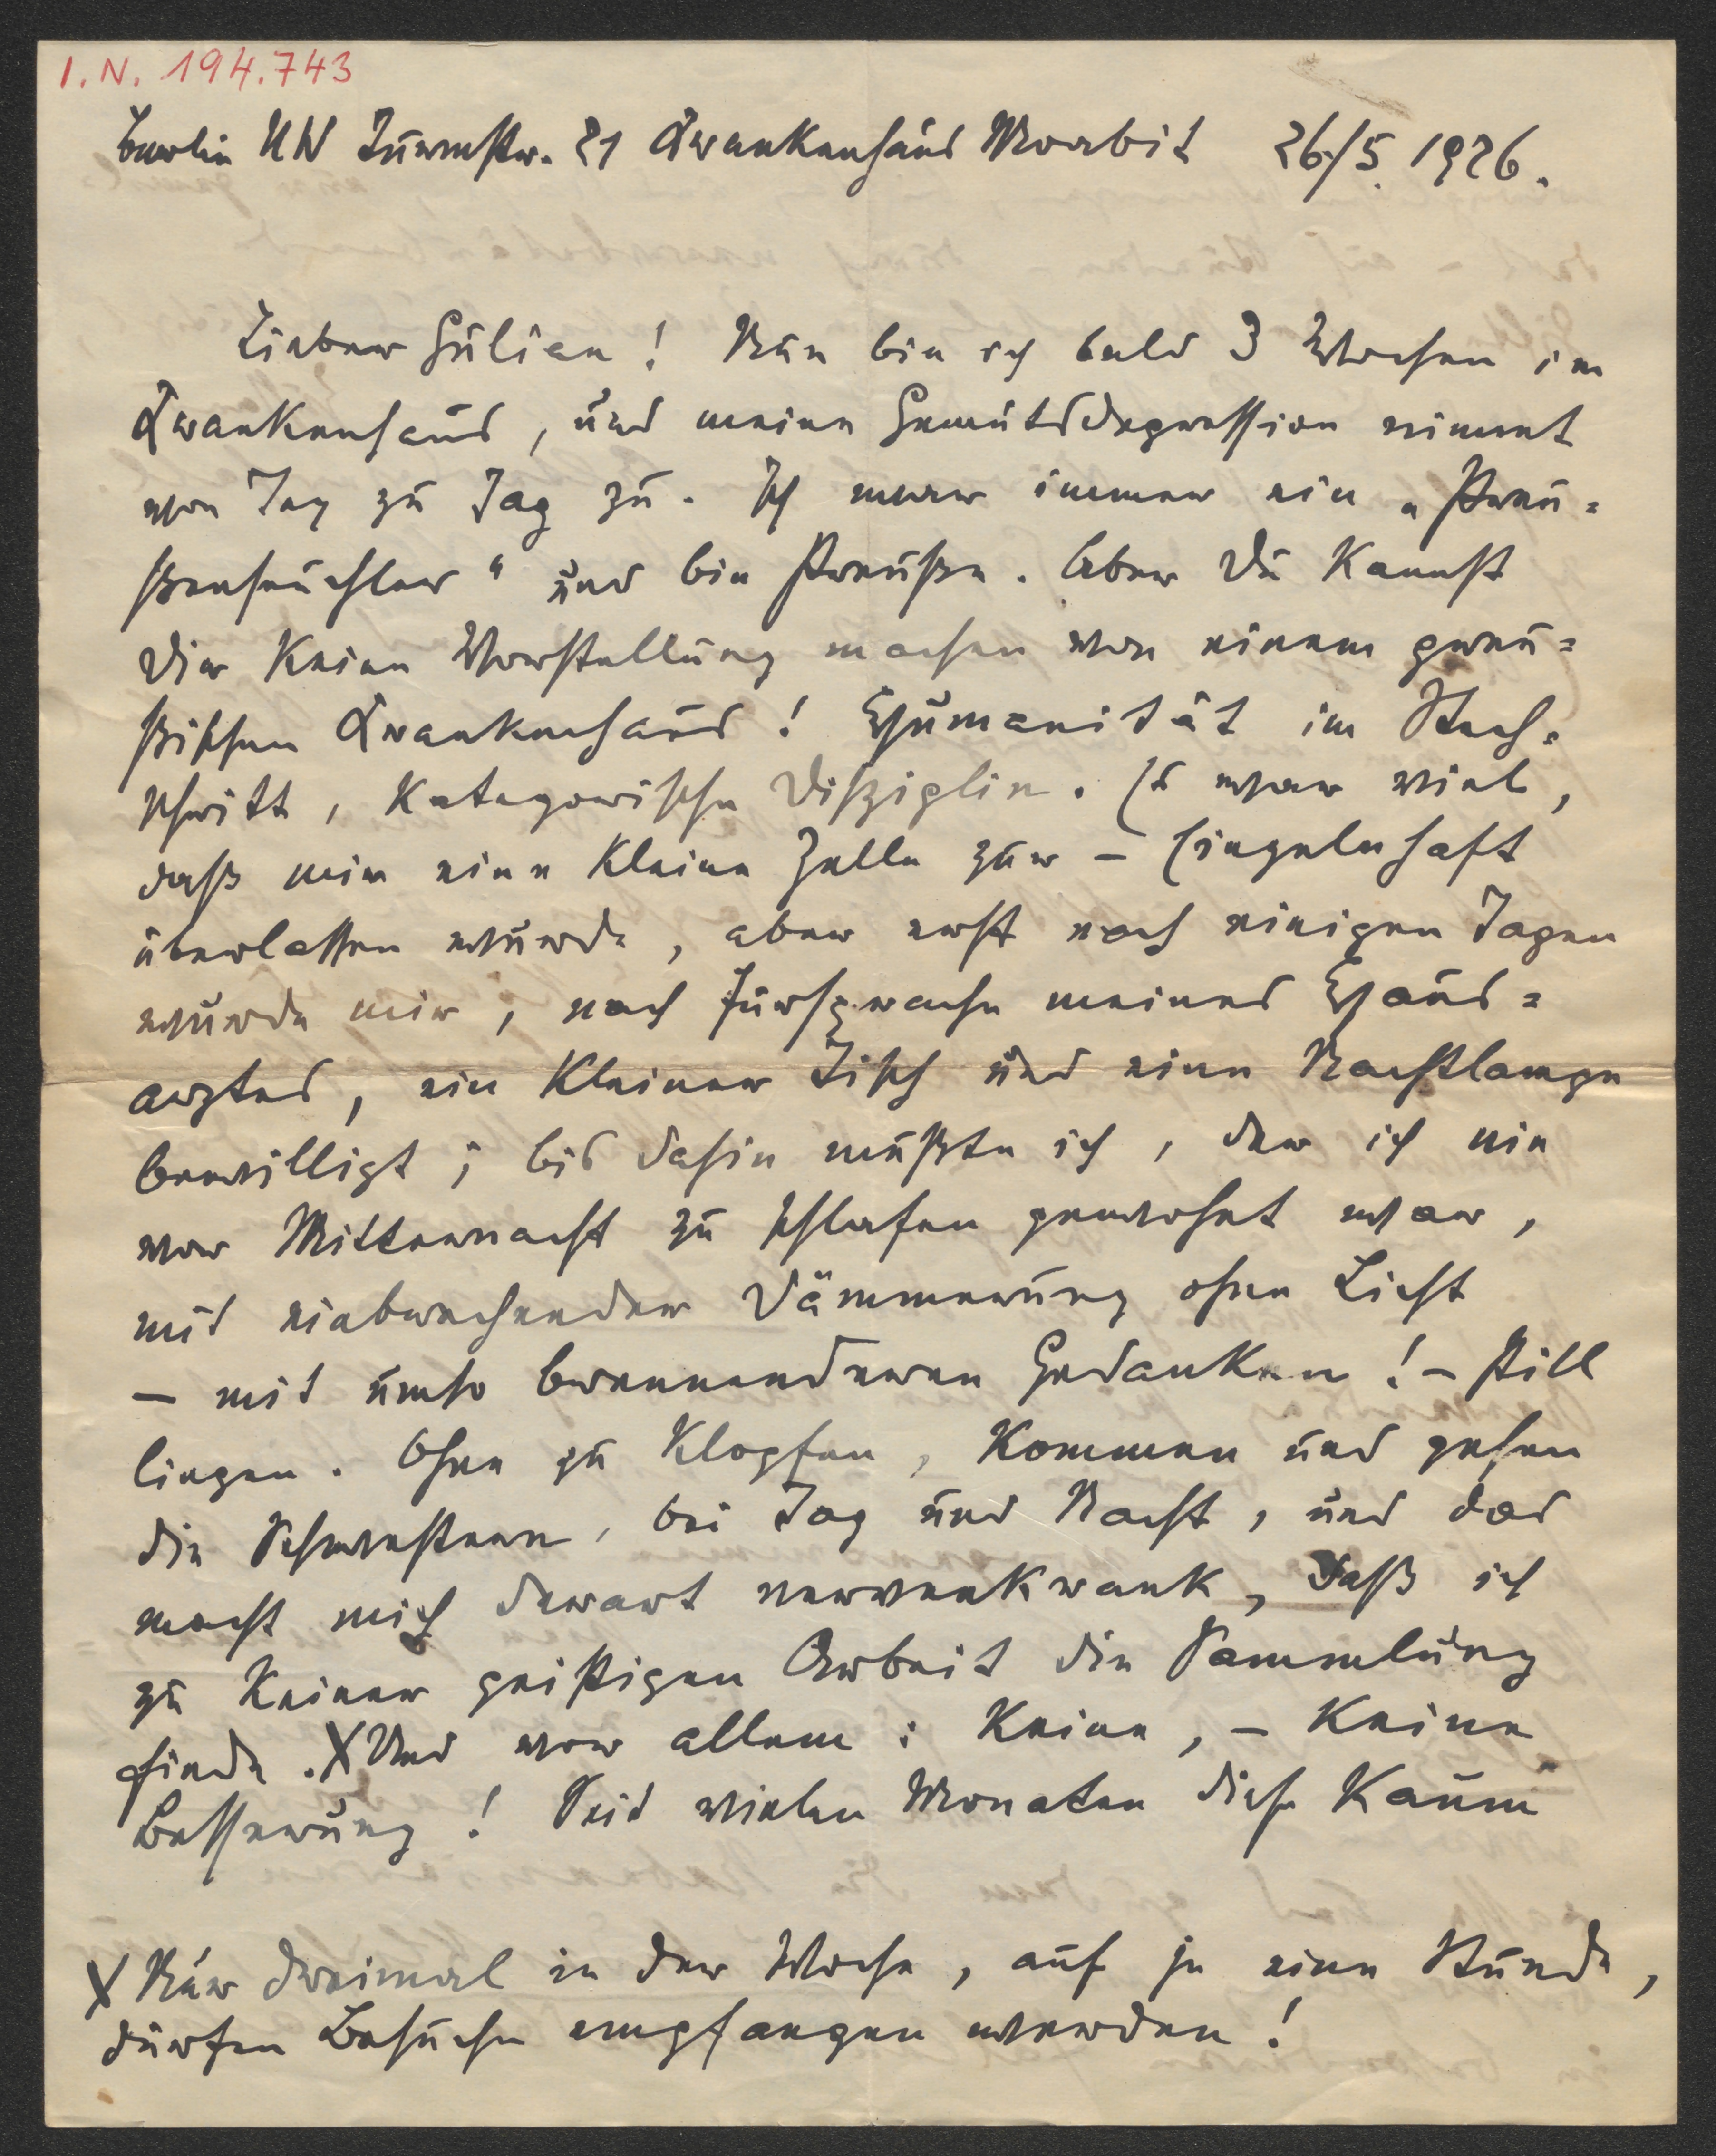 I. N. 194.743
Berlin NW Turmstr. 21 Krankenhaus Moabit 26/5. 1926.
Lieber Gülian! Nun bin ich bald 3 Wochen im
Krankenhaus, und meine Gemütsdepression nimmt
von Tag zu Tag zu. Ich war immer ein „Preu=
ßenseuchler“ und bin Preuße. Aber Du kannst
Dir keine Vorstellung machen von einem preu=
ßischen Krankenhaus! Humanität im Stech=
schritt, kategorische Disziplin. Es war viel,
daß mir eine kleine Zelle zur – Einzelnhaft
überlassen wurde, aber erst nach einigen Tagen
wurde mir, nach Fürsprache meines Haus=
arztes, ein kleiner Tisch und eine Nachtlampe
bewilligt; bis dahin mußte ich, der ich nie
vor Mitternacht zu schlafen gewohnt war,
mit einbrechender Dämmerung ohne Licht
– mit umso brennenderen Gedanken! – still
liegen. Ohne zu klopfen, kommen und gehen
die Schwestern, bei Tag und Nacht, und das
macht mich derart nervenkrank, daß ich
zu keiner geistigen Arbeit die Sammlung
finde. X Und vor allem: keine, – keine
Besserung! Seit vielen Monaten diese kaum
X Nur dreimal in der Woche, auf je eine Stunde,
dürfen Besuche empfangen werden!